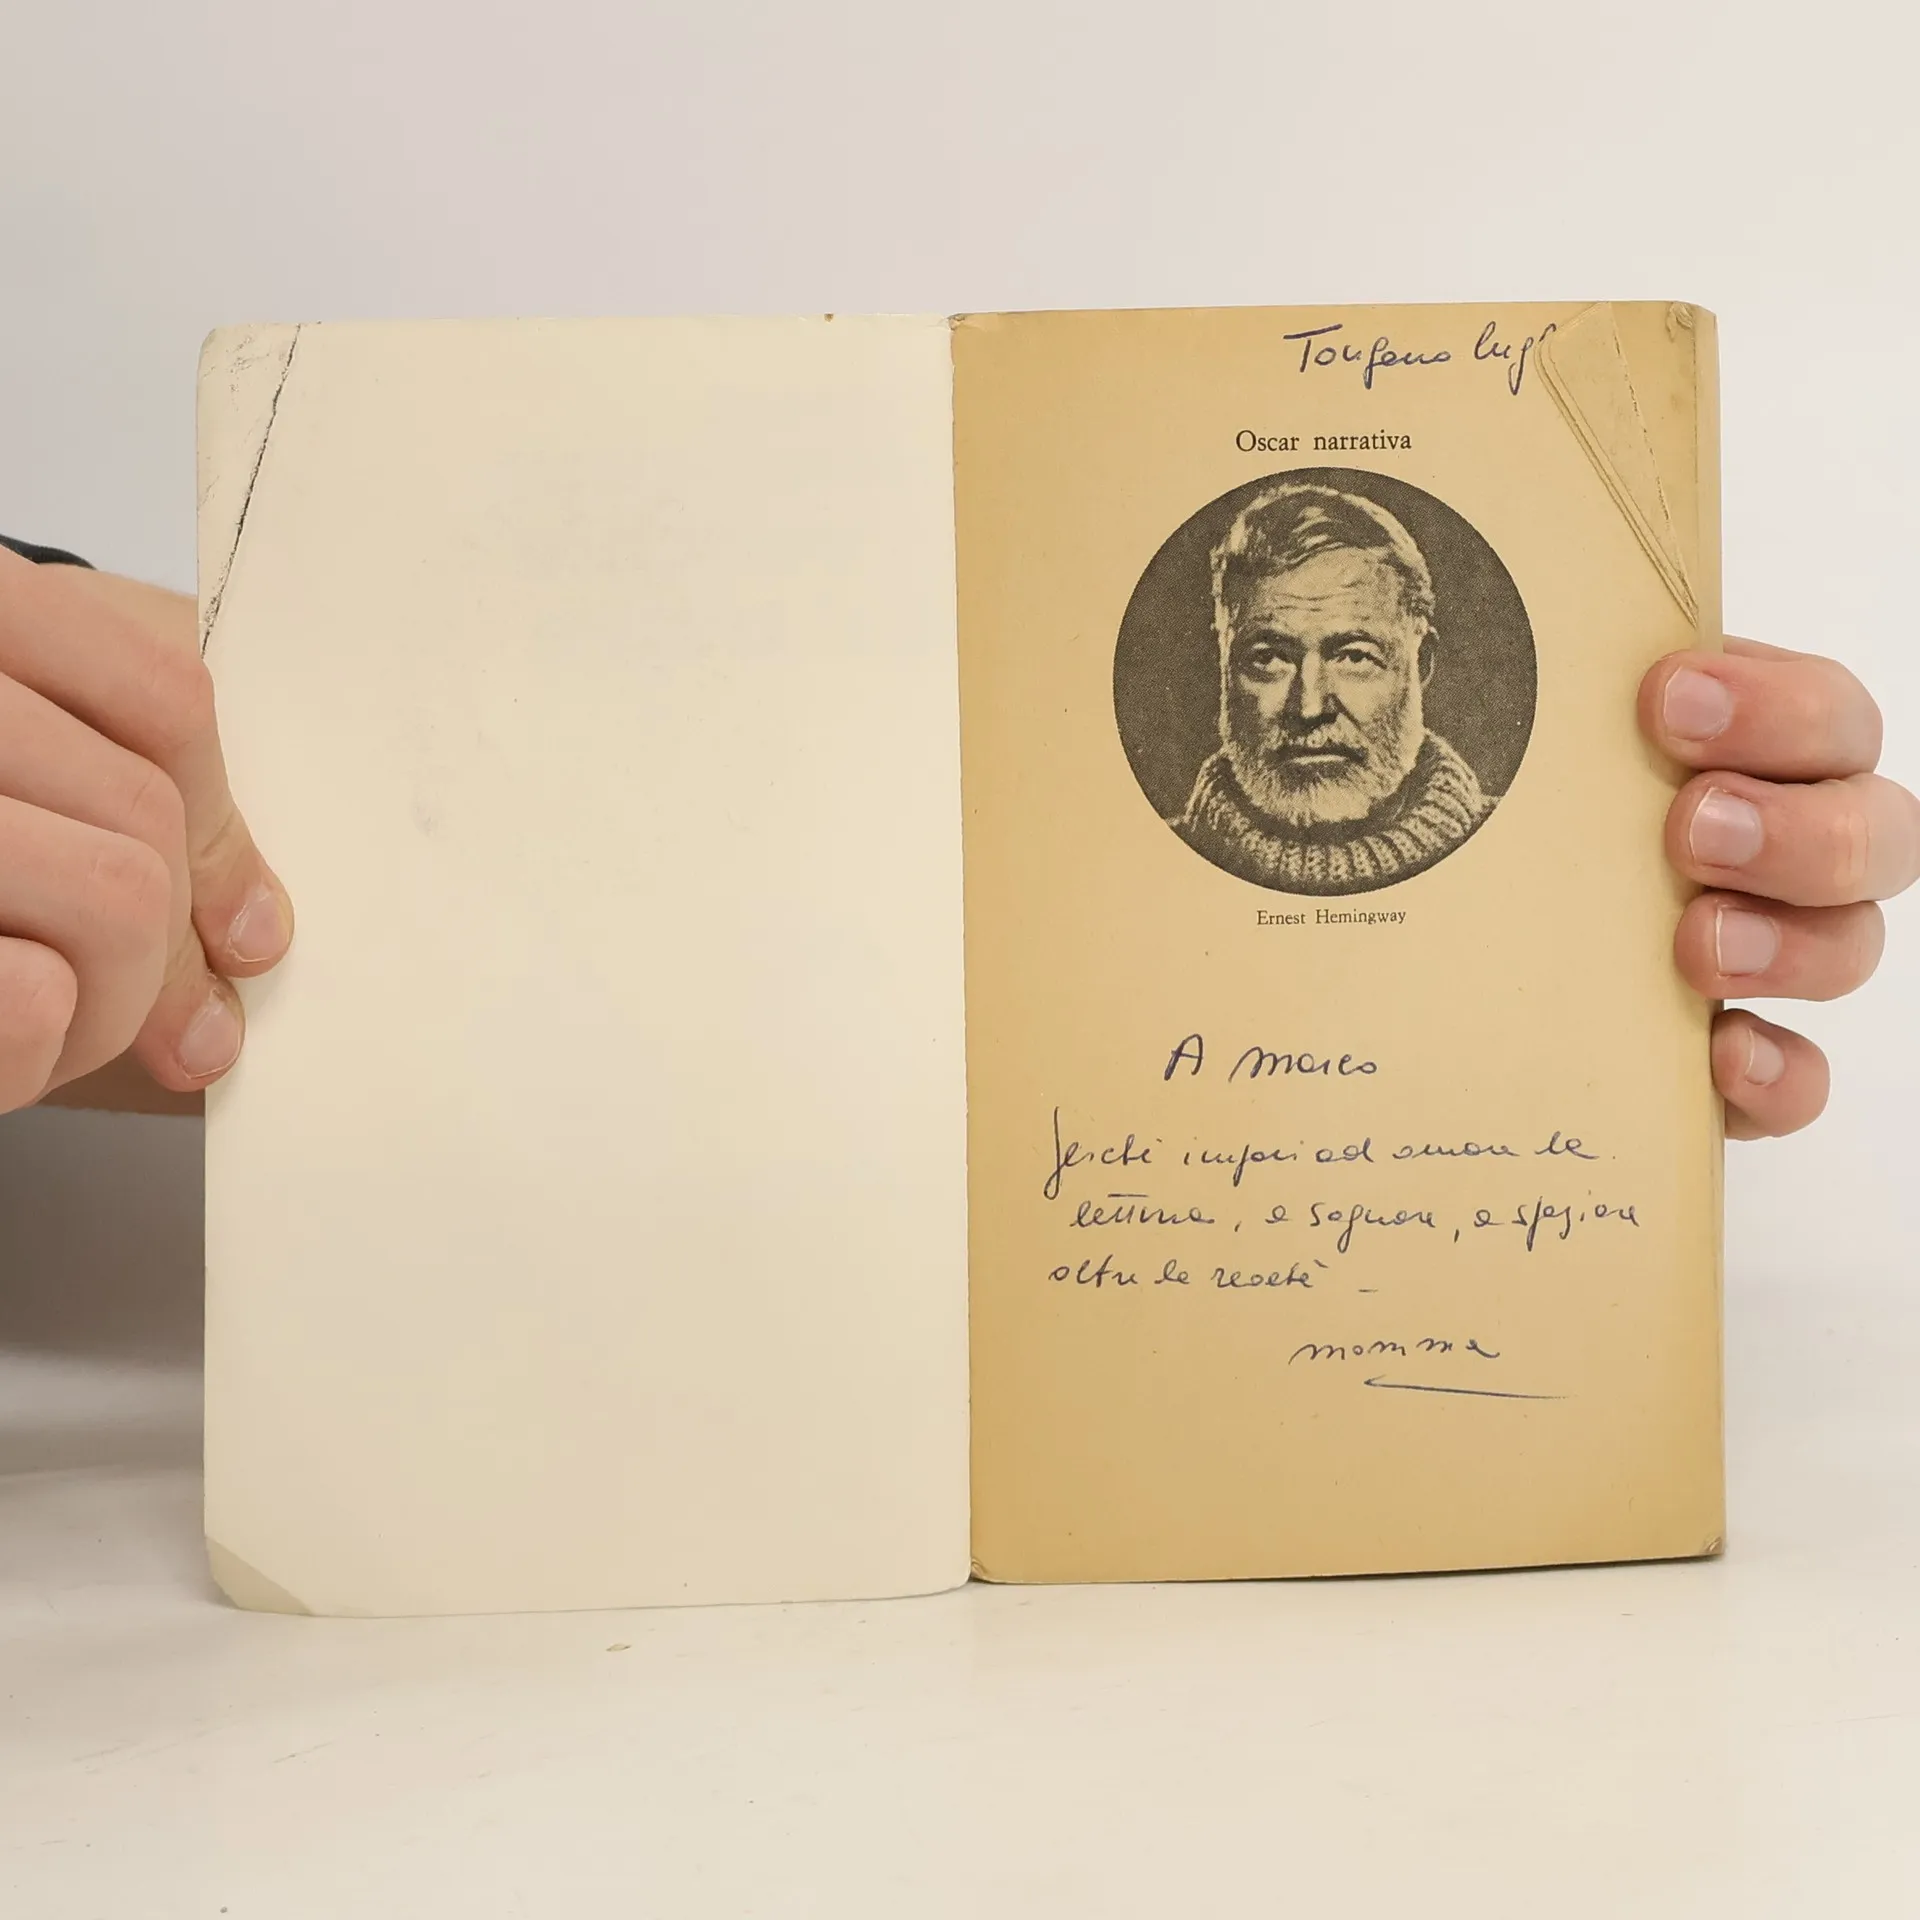 Oscar narrativa
Ernest Hemingway
A Marco
Perchè impari ad amare la
lettura, a sognare, a spaziare
oltre la realtà –
mamma